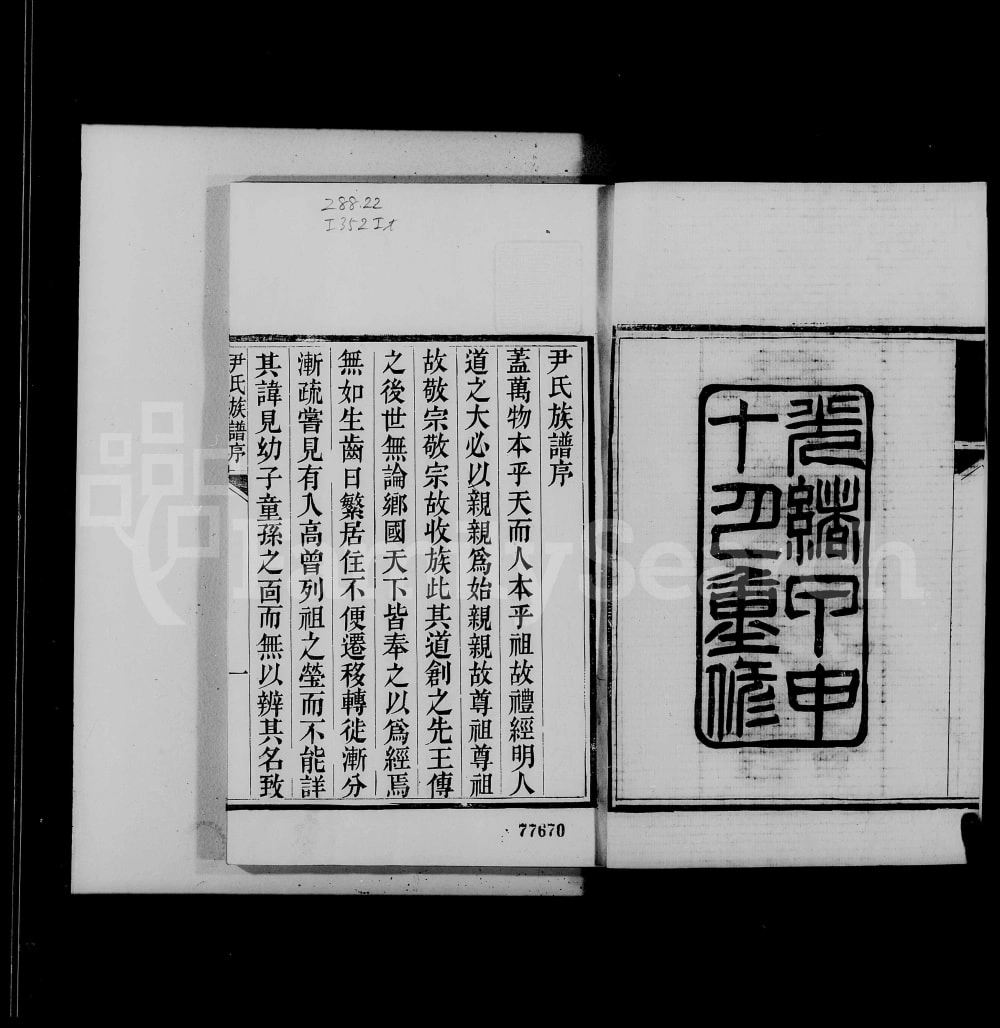 光緒甲申
十月重修
288.22
I352It
尹氏族譜序
蓋萬物本乎天而人本乎祖故禮經明人
道之大必以親親爲始親親故尊祖尊祖
故敬宗敬宗故收族此其道創之先王傳
之後世無論鄉國天下皆奉之以爲經焉
無如生齒日繁居住不便遷移轉徙漸分
漸疏嘗見有人高曾列祖之瑩而不能詳
其諱見幼子童孫之面而無以辨其名致
尹氏族譜序
一
77670
FamilySearch